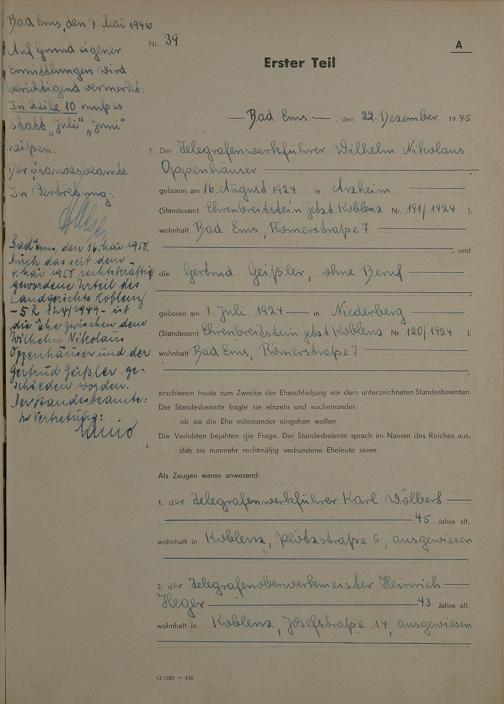 Bad Ems, den 9. Mai 1946
Auf Grund eigener
Ermittlungen wird
berichtigend vermerkt:
In Zeile 10 muß es
statt „Juli" „Juni"
heißen.
Der Standesbeamte
In Vertretung:
Bad Ems, den 16. Mai 1950.
Durch das seit dem
Mai 1950 rechtskräftig
gewordene Urteil des
Landgerichts Koblenz
- 5 R 124/1949 - ist
die Ehe zwischen dem
Wilhelm Nikolaus
Oppenhäuser und der
Gertrud Geißler ge-
schieden worden.
Der Standesbeamte:
In Vertretung:
Nr. 39
A
Erster Teil
Bad Ems, den 22. Dezember 1945
1. Der Telegrafenwerkführer Wilhelm Nikolaus
Oppenhäuser
geboren am 16. August 1924 in Arzheim
(Standesamt Ehrenbreitstein jetzt Koblenz Nr. 191/1924 ).
wohnhaft Bad Ems, Römerstraße 7
und
die Gertrud Geißler, ohne Beruf
geboren am 1. Juli 1924 in Niederberg
(Standesamt Ehrenbreitstein jetzt Koblenz Nr. 120/1924 ).
wohnhaft Bad Ems, Römerstraße 7
erschienen heute zum Zwecke der Eheschließung vor dem unterzeichneten Standesbeamten.
Der Standesbeamte fragte sie einzeln und nacheinander,
ob sie die Ehe miteinander eingehen wollen.
Die Verlobten bejahten die Frage. Der Standesbeamte sprach im Namen des Reiches aus,
daß sie nunmehr rechtmäßig verbundene Eheleute seien.
Als Zeugen waren anwesend:
1. der Telegrafenwerkführer Karl Wölbert
45 Jahre alt,
wohnhaft in Koblenz, 5, ausgewiesen
2. der Telegrafenoberwerkmeister Heinrich
Heger 43 Jahre alt,
wohnhaft in Koblenz, Josefstraße 14, ausgewiesen